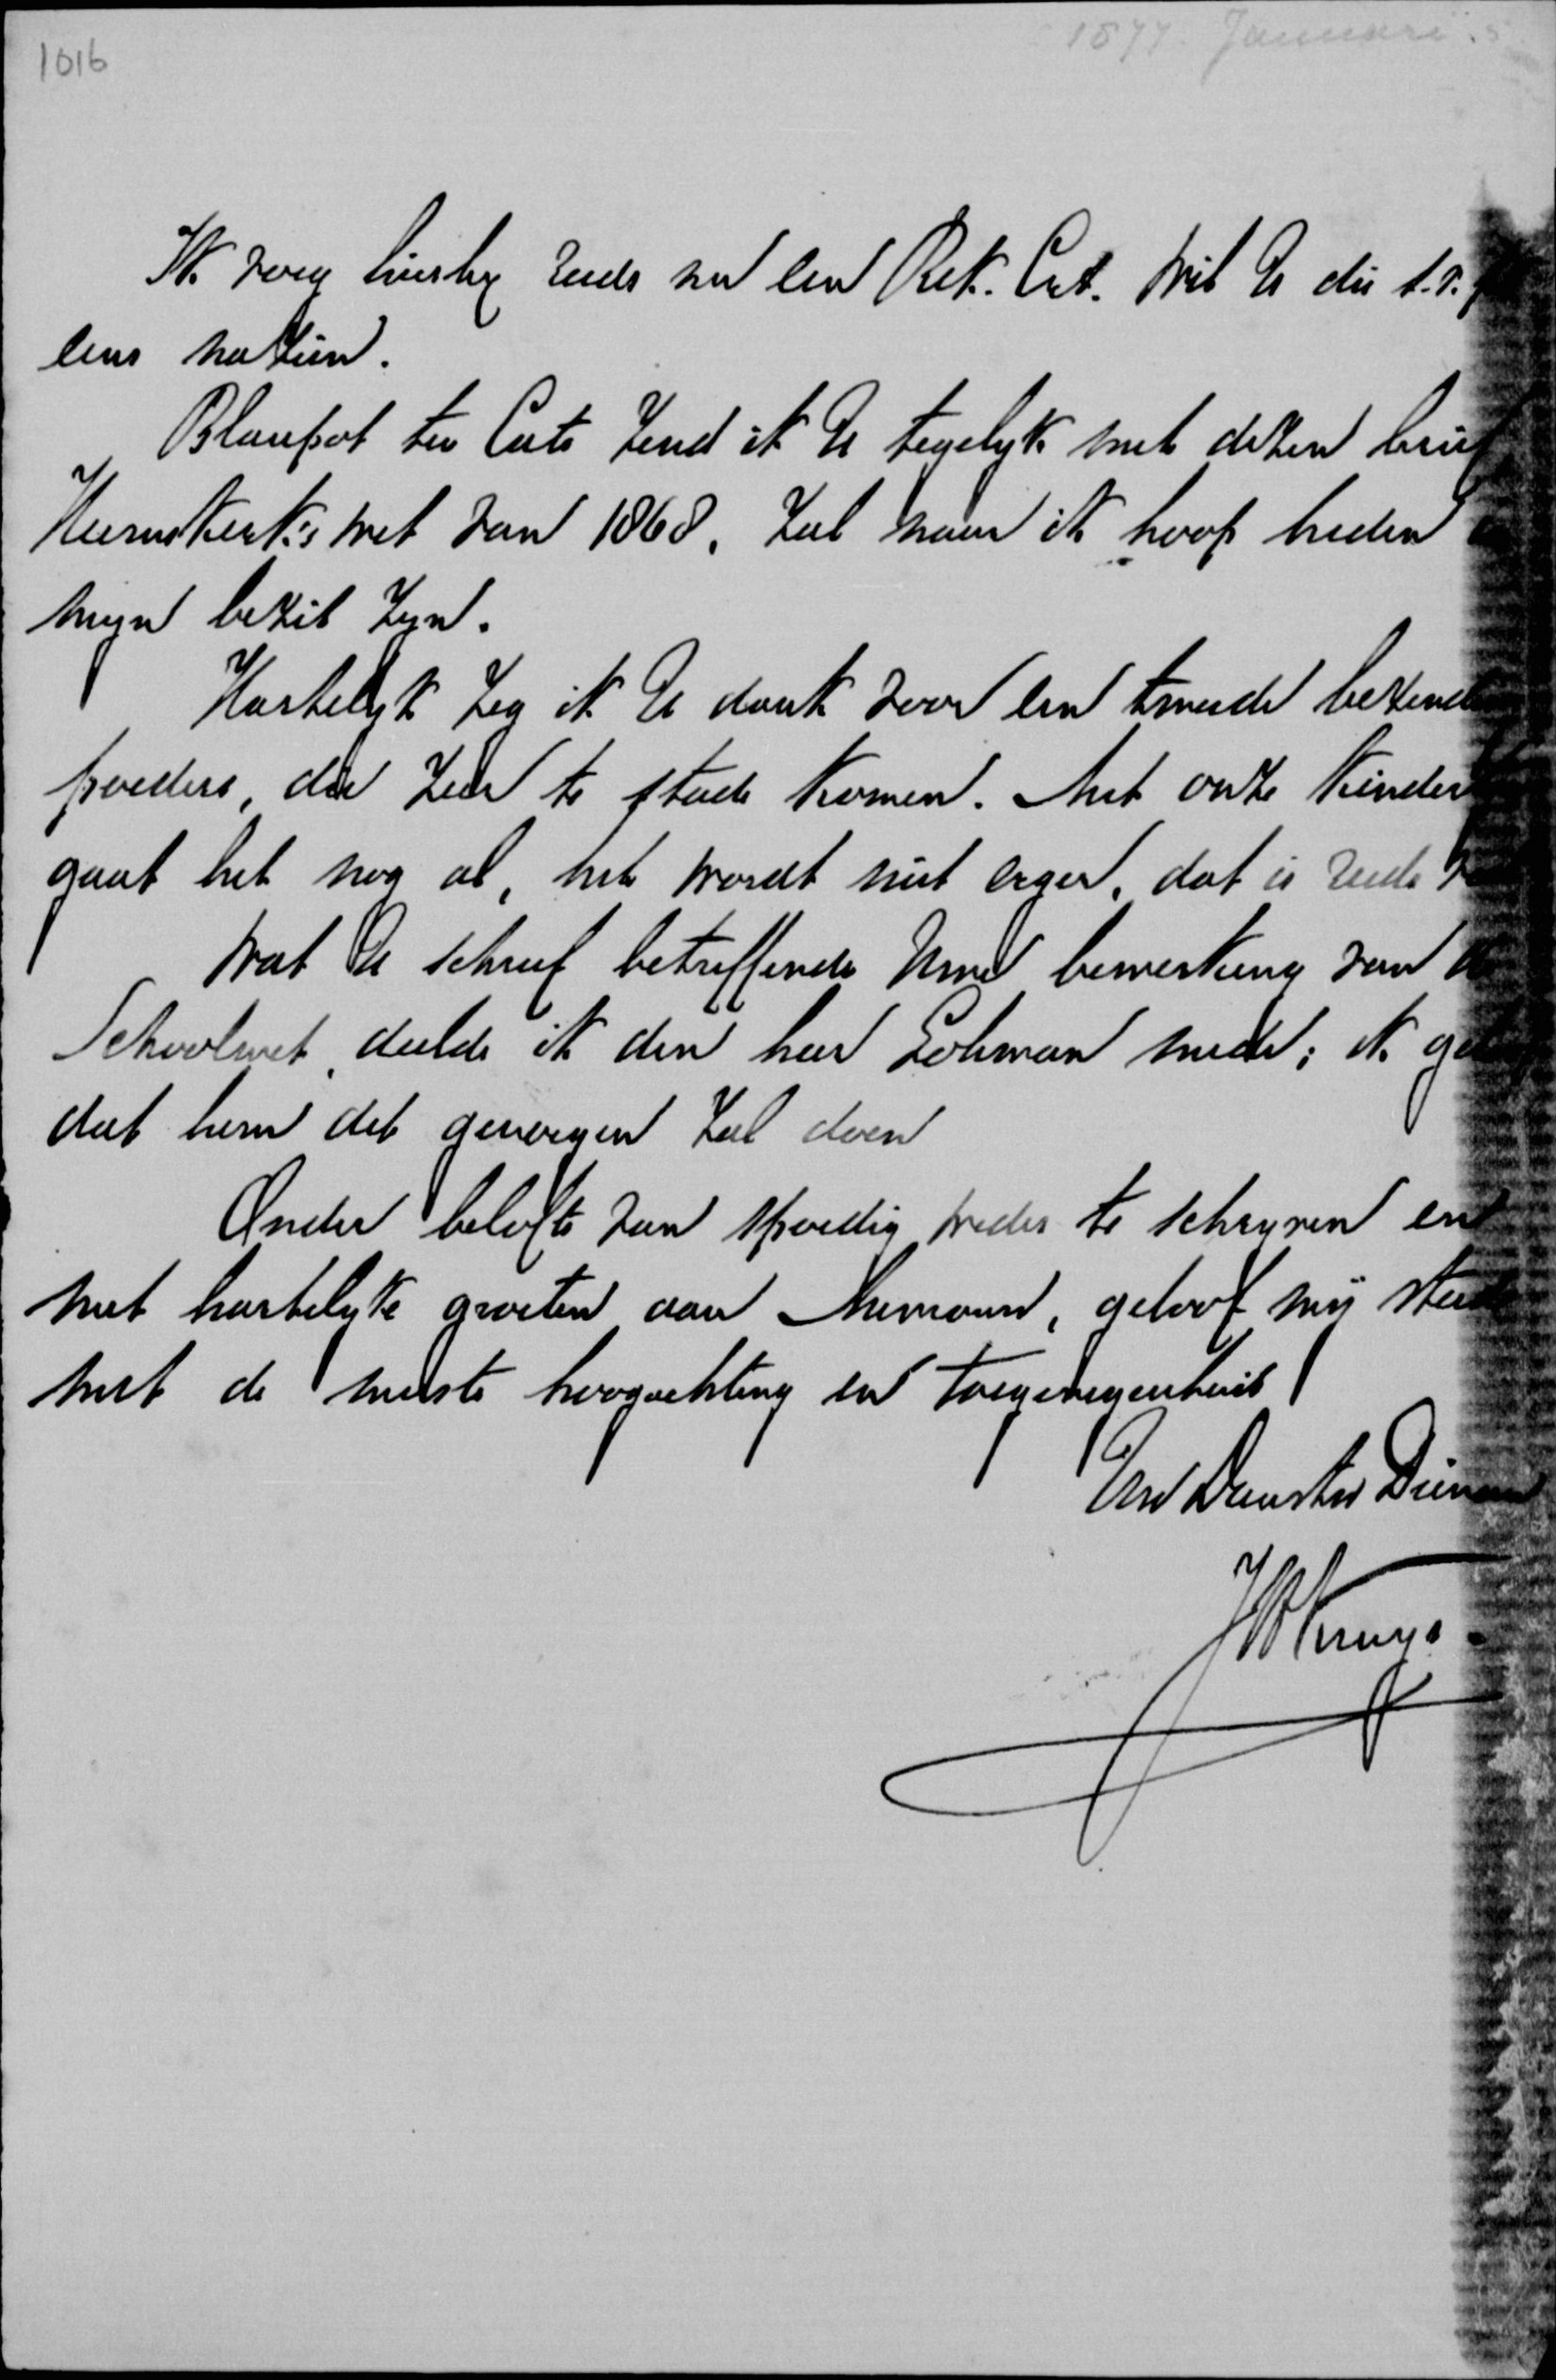 1016
1877 Januari
Ik voeg hierby reeds nu een Rek. Crt. Wil U die s.v.p
eens nazien.
Blaupot ten Cate zend ik U tegelyk met dezen brief
Heemskerk's wet van 1868, zal naar ik hoop heden
myn bezit zyn.
Hartelyk zeg ik U dank voor een tweede bezend
poeders, die zeer te stade komen. Met onze kinder
gaat het nog al, het wordt niet erger, dat is reeds
Wat U schreef betreffende Uwe bewerking van de
Schoolwet, deelde ik den heer Lohman mede; ik ge
dat hem dit genoegen zal doen
Onder belofte van spoedig weder te schryven en
met hartelyke groeten aan Mevrouw, geloof mij steeds
met de meeste hoogachting en toegenegenheid
Uw Dienstw Dienaar
JH Kruyt